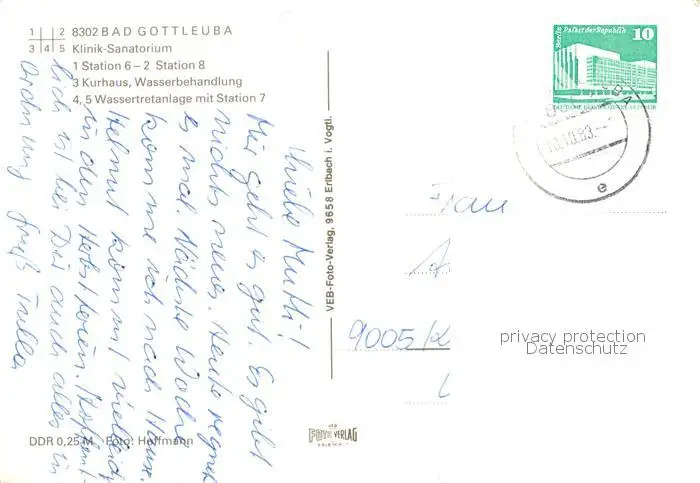 1 2 8302 BAD GOTTLEUBA
3 4 5 Klinik-Sanatorium
1 Station 6 – 2 Station 8
3 Kurhaus, Wasserbehandlung
4, 5 Wassertretanlage mit Station 7
Liebe Mutti!
Mir geht es gut. Es gibt
nichts neues. Heute regnet
es mal. Nächste Woche
komme ich nach Hause.
Helmut kommt vielleicht
in den Herbstferien. Hoffent-
lich ist bei Dir auch alles in
Ordnung Gruß
DDR 0,25 M Foto: Hoffmann
VEB-Foto-Verlag, 9658 Erlbach i. Vogtl.
VERLAG
Berlin, Palast der Republik
10
10.83
e
Frau
A
9005 K
privacy protection
Datenschutz